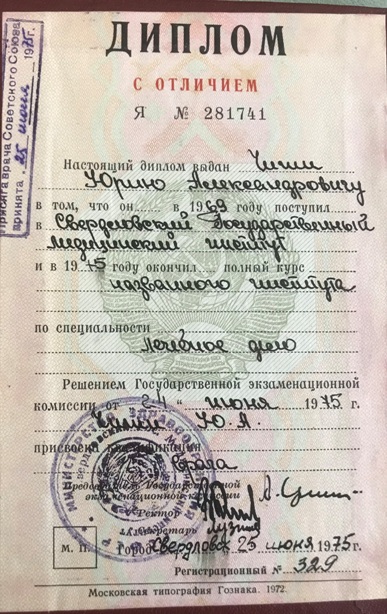 Присяга врача Советского Союза
принята „25 июня 1975г.
ДИПЛОМ
С ОТЛИЧИЕМ
Я № 281741
Настоящий диплом выдан
Юрию Александровичу
в том, что он в 1969 году поступил
в Свердловский Государственный
медицинский институт
и в 1975 году окончил полный курс
названного института
по специальности
лечебное дело
Решением Государственной экзаменационной
комиссии от „24“ июня 1975 г.
Ю. А.
присвоена квалификация
врача
Председатель Государственной
экзаменационной комиссии
Ректор
Секретарь
М. П. Город Свердловск 25 июня 1975г.
Регистрационный № 329
Московская типография Гознака. 1972.